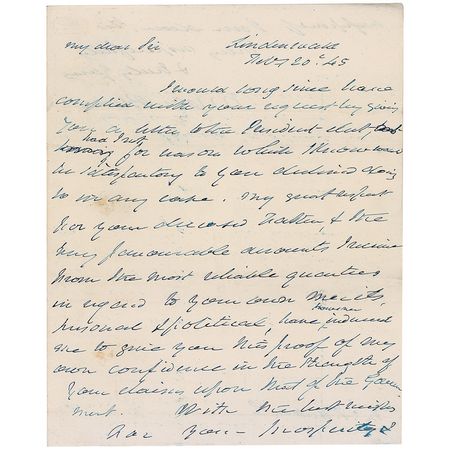 My dear Sir Lindenwald
Feby 20th 45
I would long since have
complied with your request by giving
you a letter to the President but
had I not for reasons which I know were
satisfactory to you declined doing
so in any case. My great respect
for your deceased Father & the
very favourable accounts I receive
from the most reliable quarters
in regard to your own merits,
personal & political, have however induced
me to give you this proof of my
own confidence in the strength of
your claims upon that of the Govern
ment. With the best wishes
for your prosperity &